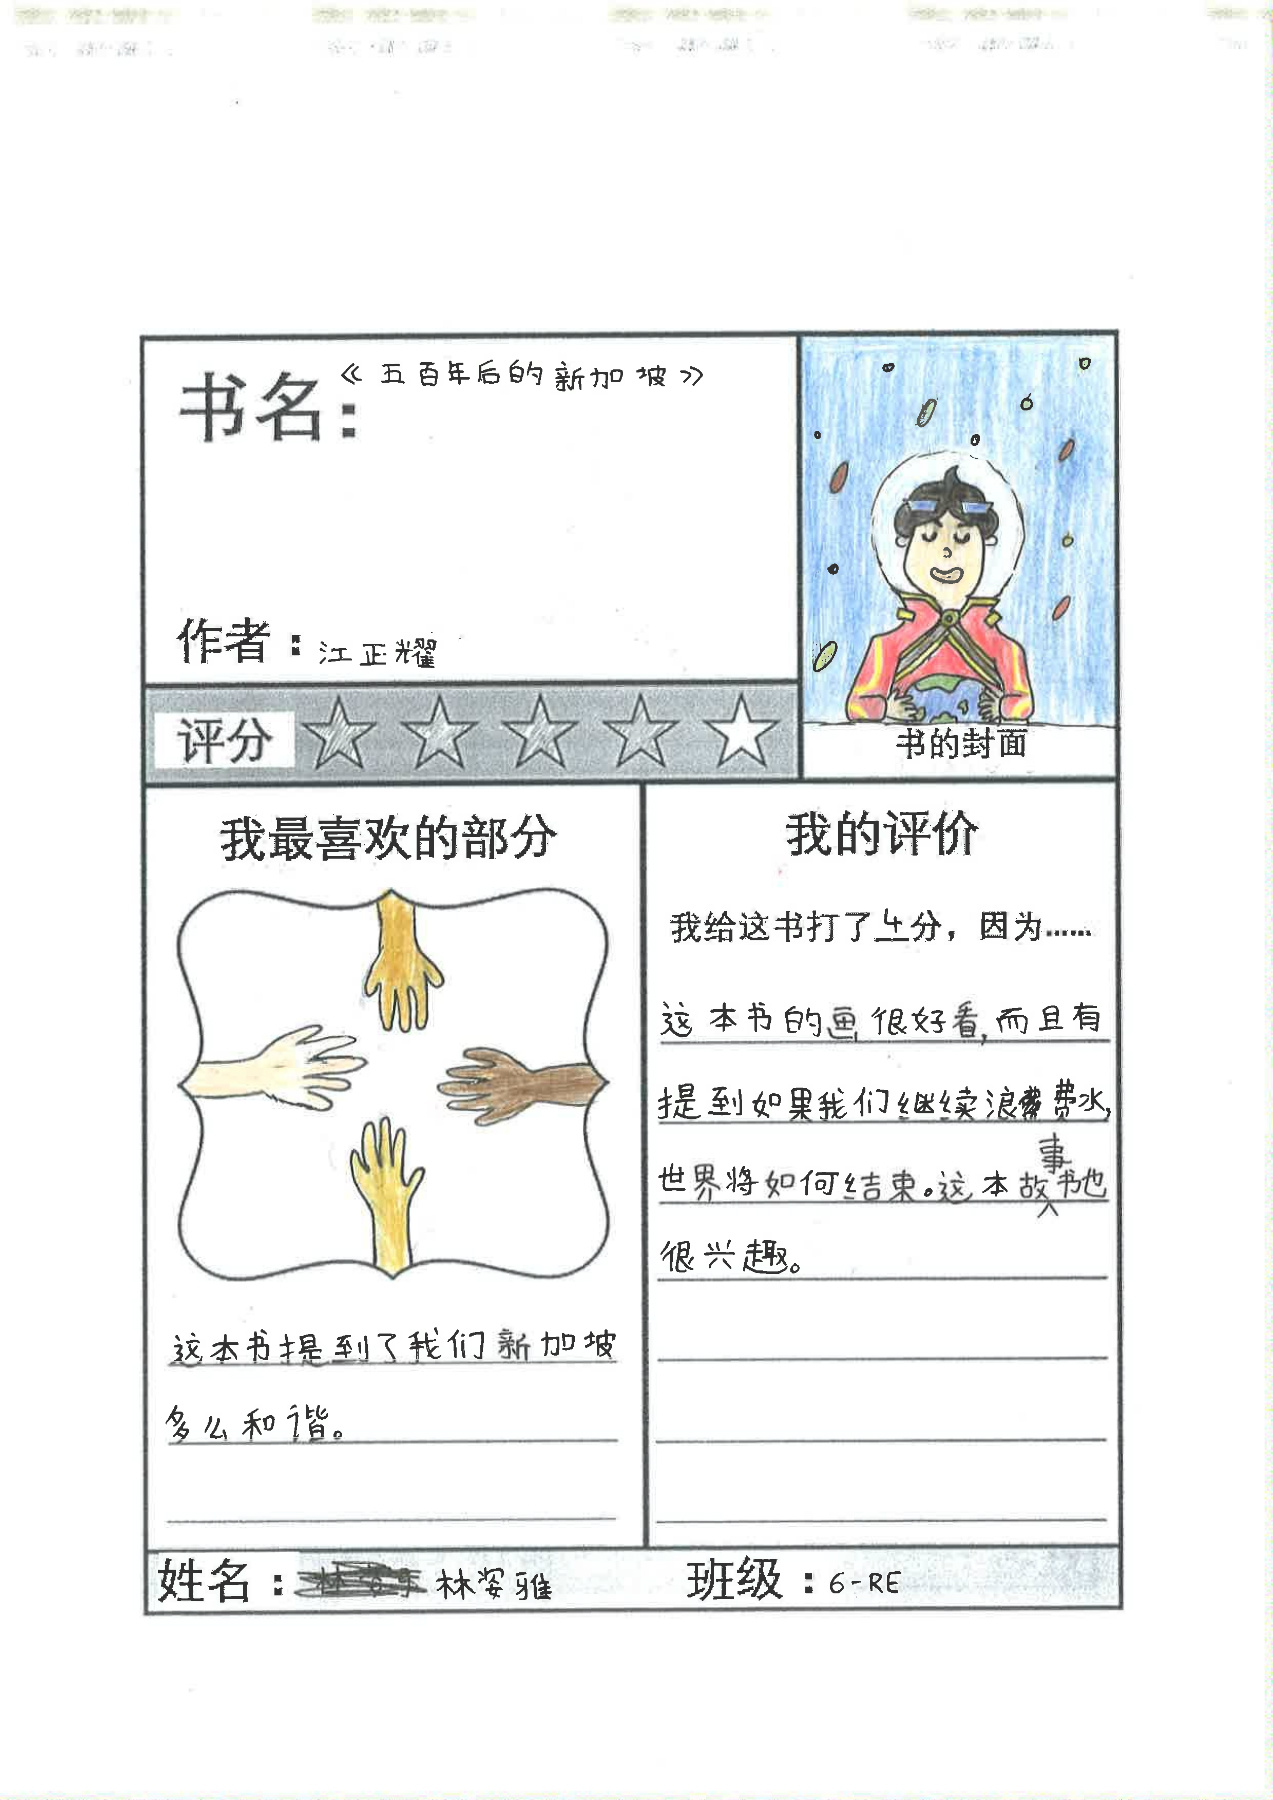 书名：《五百年后的新加坡》
作者：江正耀
评分
书的封面
我最喜欢的部分
这本书提到了我们新加坡
多么和谐。
我的评价
我给这书打了4分，因为……
这本书的画很好看，而且有
提到如果我们继续浪费水，
世界将如何结束。这本故事书也
很兴趣。
姓名：林姿雅
班级：6-RE